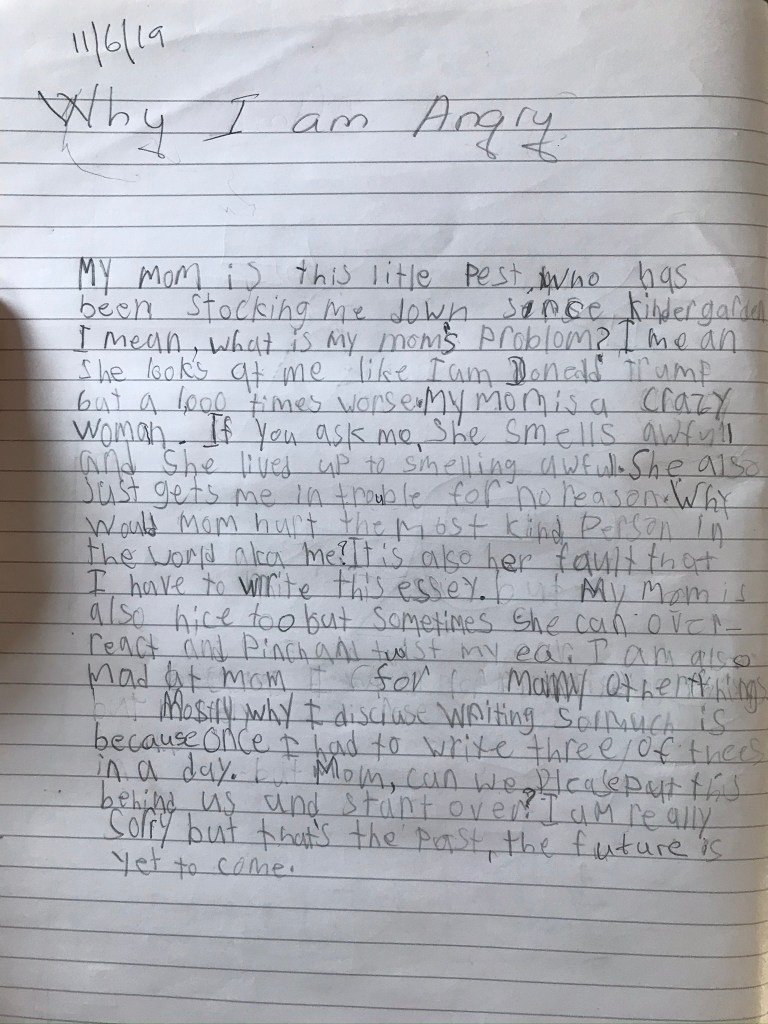 11/6/19
Why I am Angry
My mom is this litle pest, who has
been stocking me down since kindergarden
I mean, what is my mom's problom? I mean
she look's at me like I am Doneald Trump
but a 1,000 times worse. My mom is a crazy
woman. If you ask me, she smells awfull
and she lived up to smelling awfull. She also
just gets me in trouble for no reason. Why
would mom hurt the most kind person in
the world aka me? It is also her fault that
I have to write this essey. but My mom is
also nice too but sometimes she can over-
react and pinch and twist my ear. I am also
mad at mom for many other things
Mostly why I discluse writing so much is
because once I had to write three of thees
in a day. Mom, can we please put this
behind us and start over? I am really
sorry but that's the past, the future is
yet to come.